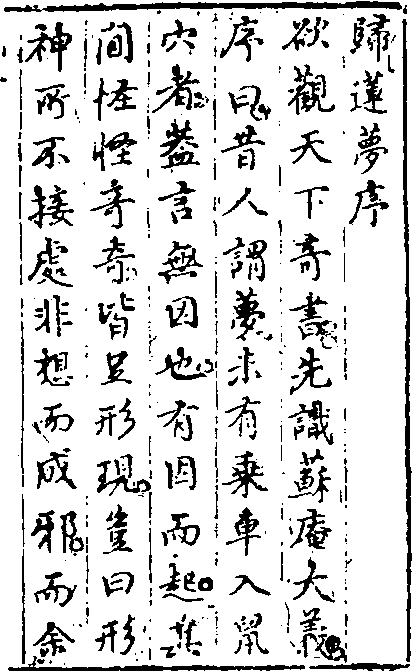 歸蓮夢序
欲觀天下奇書先識蘇庵大義
序曰昔人謂夢未有乗車入鼠
穴者葢言無因也有因而起其
間怪怪奇奇皆足形現豈曰形
神所不接處非想而成邪而余